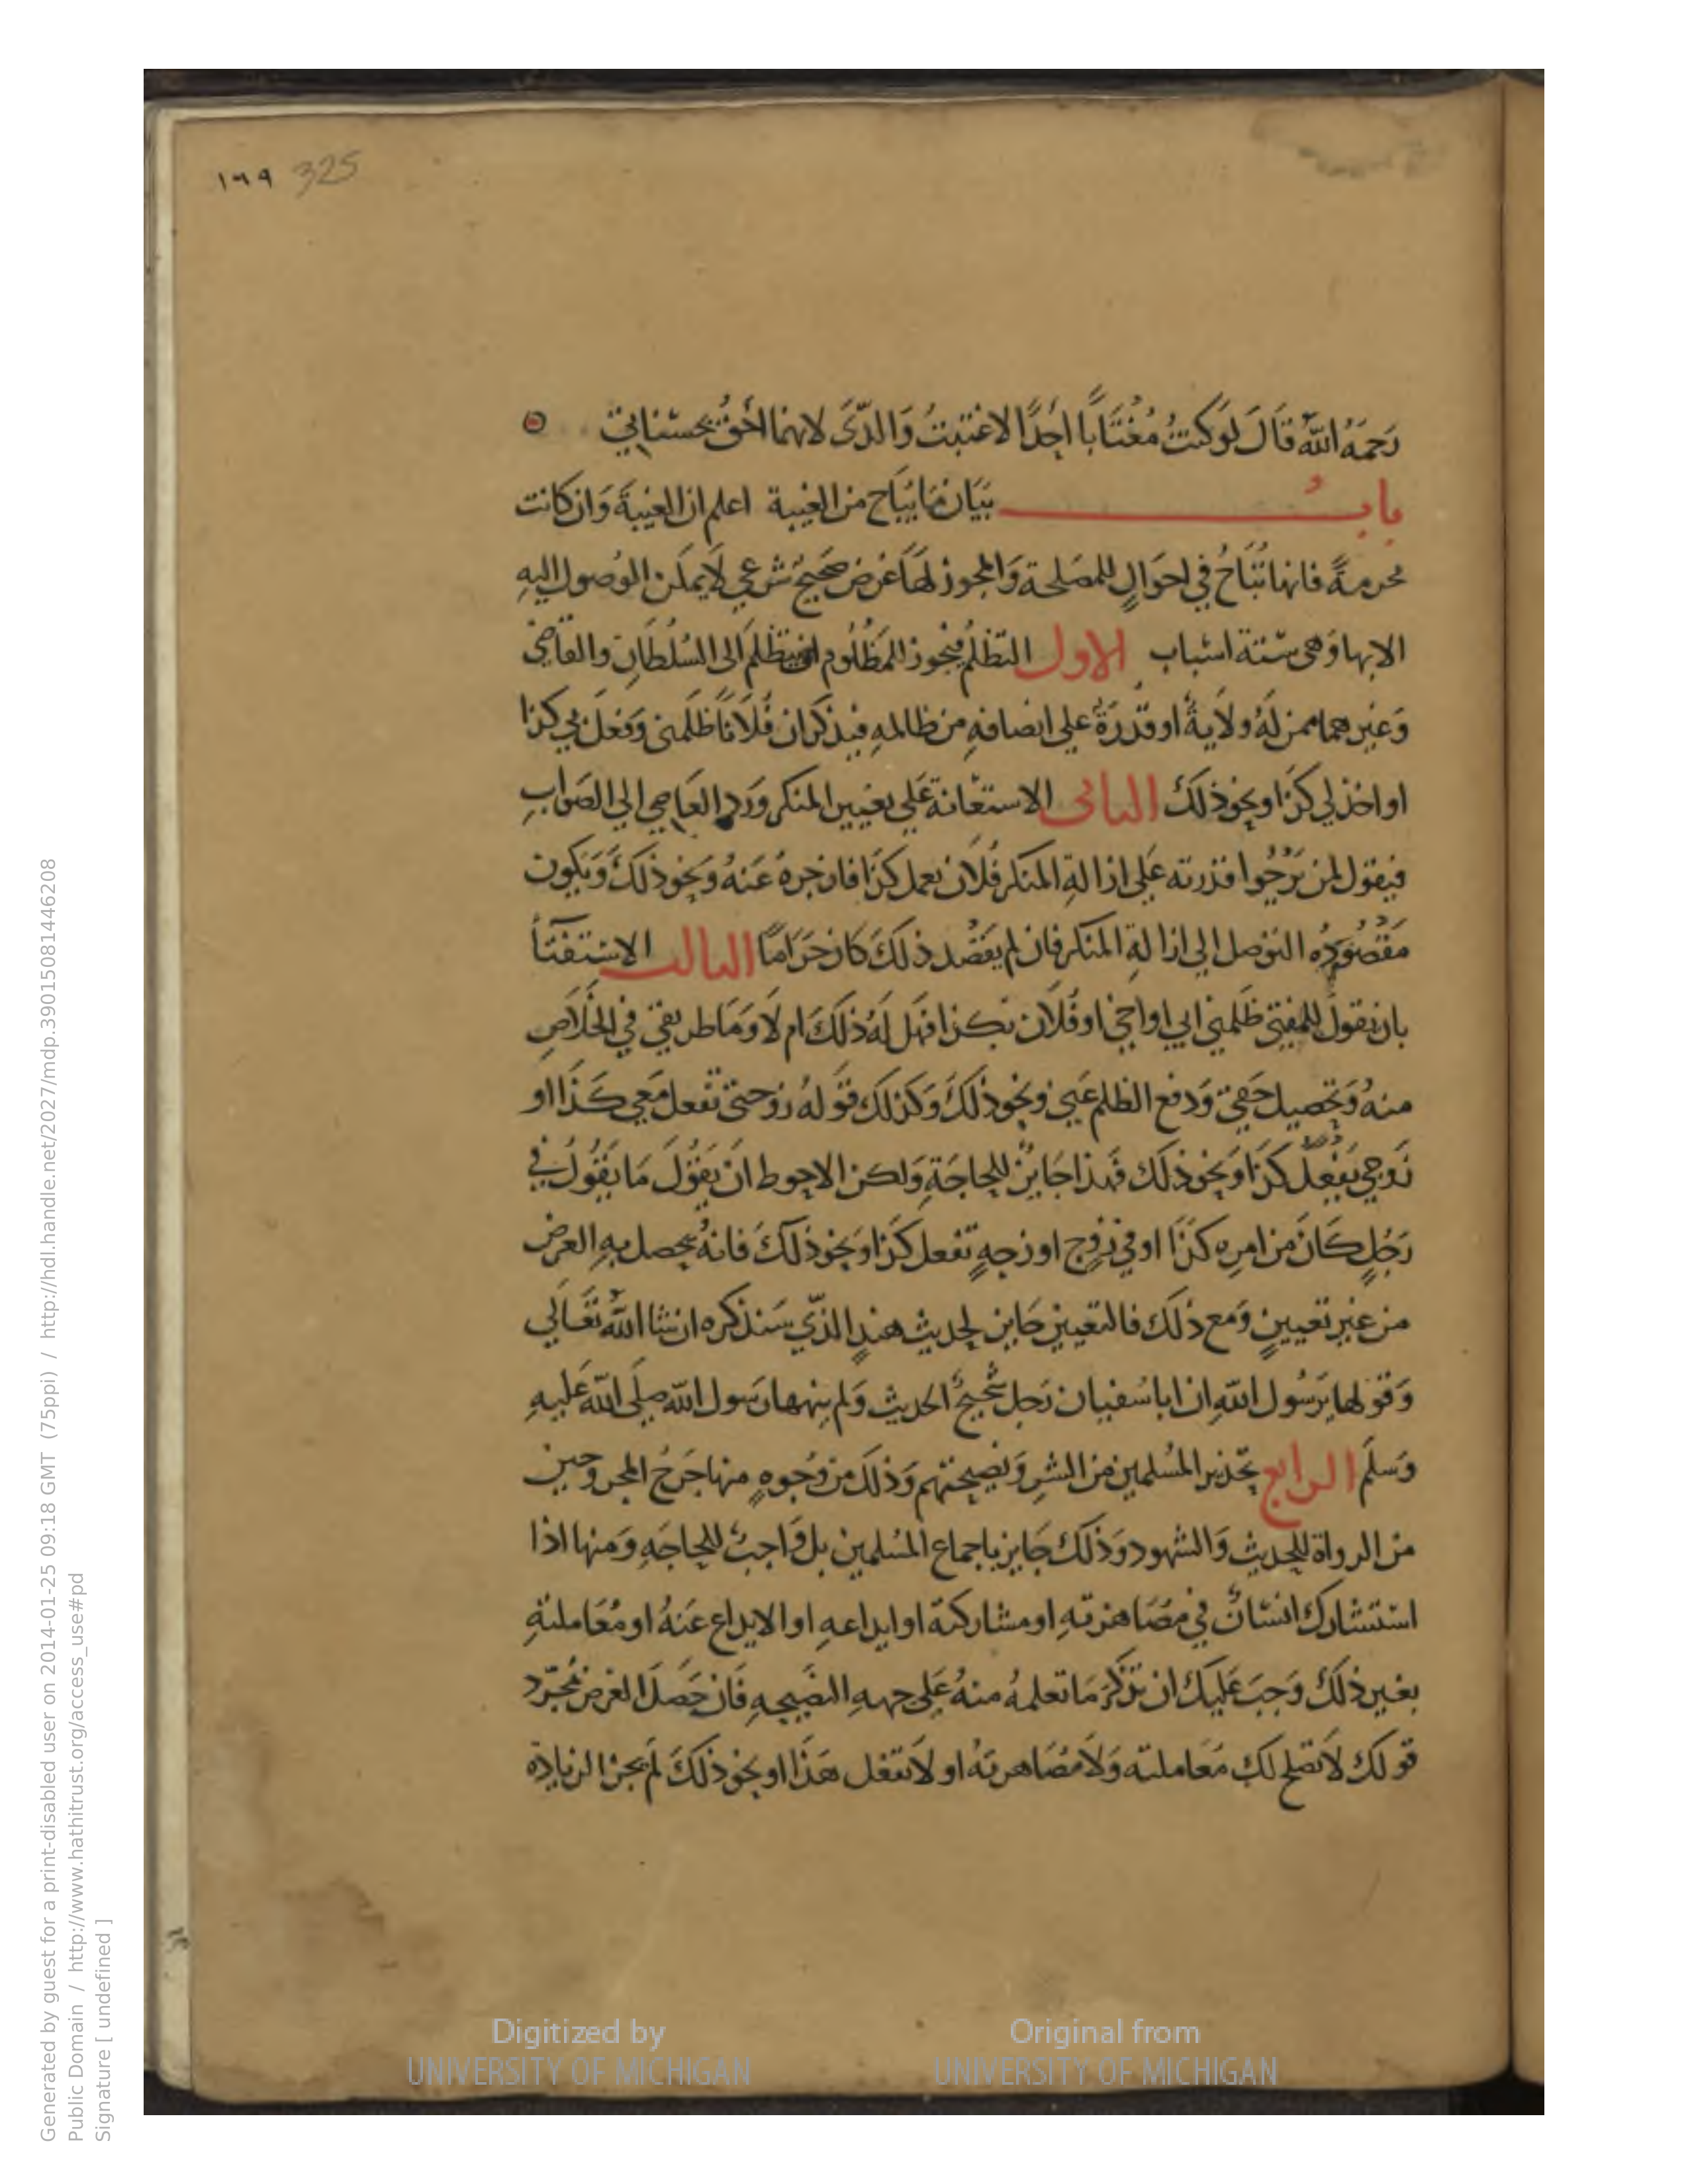 ١٦٩ 325
رَحمَهُ اللّٰه قَالَ لَو كنتُ مُغْتَابًا اَحَدًا لاغتبتُ وَالدَّىَ لانهما احَقُ بحسَناتي
بابُ بيَان مَا يُبَاح من الغيبة اعلم ان الغيبَةَ وَان كانت
محرمةً فانها تُبَاحُ في احوَالٍ للمصَلحة وَالمجوز لهَا غرَض صَحيحٌ شرعي لَا يمكن الوُصول اليه
الا بها وَهى ستة اسْباب الاول التظلمُ فيجوز للمَظْلُوم ان يتظلم الى السُلطَان والقاضي
وَغير هما ممن لَهُ ولَايةٌ او قُدرَةٌ علي انصافهِ من ظالمهِ فيذكر ان فُلَانًا ظلَمنى وَفعَل بي كذا
او اخذ لي كذَا او نحو ذلكَ الثانى الاستعَانة عَلي تغيير المنكر وَرد العَاصي الي الصَواب
فيقول لمن يَرْجُوا قدرته عَلي ازالةِ المنكر فُلَان يعمل كذَا فازجرهُ عَنهُ وَنحو ذلكَ وَيكون
مَقصُودُه التوصل الي ازالةِ المنكر فان لم يَقصُد ذلكَ كان حَرَامًا الثالث الاسْتفتَأ
بان يقولُ للمفتي ظلمني ابي او اخي او فُلَان بكذا فهَل لَهُ ذلكَ ام لَا وَمَا طريقي في الخلَاصِ
منهُ وَتحصيل حَقي وَدفع الظلم عَني وَنحو ذلكَ وَكذلك قولهُ زوجتى تفعل مَعي كَذَا او
زَوجي يَفعلُ كذَا وَنحو ذلك فهَذا جَايزٌ للحاجَةِ وَلكن الاحوط ان يَقُولَ مَا يَقُولُ في
رَجُلٍ كَانَ من امرِه كذَا او في زَوجٍ او زوجهٍ تفعل كذَا وَنحو ذلكَ فَانهُ يحصل بهِ الغرض
من غير تعيينٍ وَمع ذلكَ فالتعيين جَايز لحديث هندٍ الذّي سَنذكره ان شا اللّٰه تعَالي
وَقولها يَرَسُول اللّٰهِ ان ابا سُفيان رَجل شَحيحٌ الحديث وَلم ينهها رَسول اللّٰه صلي اللّٰه عَليهِ
وَسلم الرابع تحذير المُسلمين من الشرِ وَنصيحَتهم وَذلكَ من وُجوهٍ منها جَرحُ المجروحين
من الرواة للحديث وَالشهود وَذلكَ جَايز باجماع المُسلمين بل وَاجبٌ للحاجَهِ وَمنها اذا
استشارك انسَانٌ في مصَاهرتهِ او مشاركته او ايداعهِ او الايداع عَنهُ او مُعَاملتهِ
بغير ذلكَ وَجبَ عَليكَ ان تذكر مَا تعلمهُ منهُ عَلي جههِ النصَيحهِ فَان حَصَلَ الغرض بمُجَرّد
قولكَ لَا تصلح لكَ مُعَاملته وَلَا مُصَاهرتهُ او لَا تفعل هَذَا او نحو ذلكَ لَم تجز الزيادهَ
Generated by guest for a print-disabled user on 2014-01-25 09:18 GMT (75ppi) / http://hdl.handle.net/2027/mdp.39015081446208
Public Domain / http://www.hathitrust.org/access_use#pd
Signature [ undefined ]
Digitized by
UNIVERSITY OF MICHIGAN
Original from
UNIVERSITY OF MICHIGAN